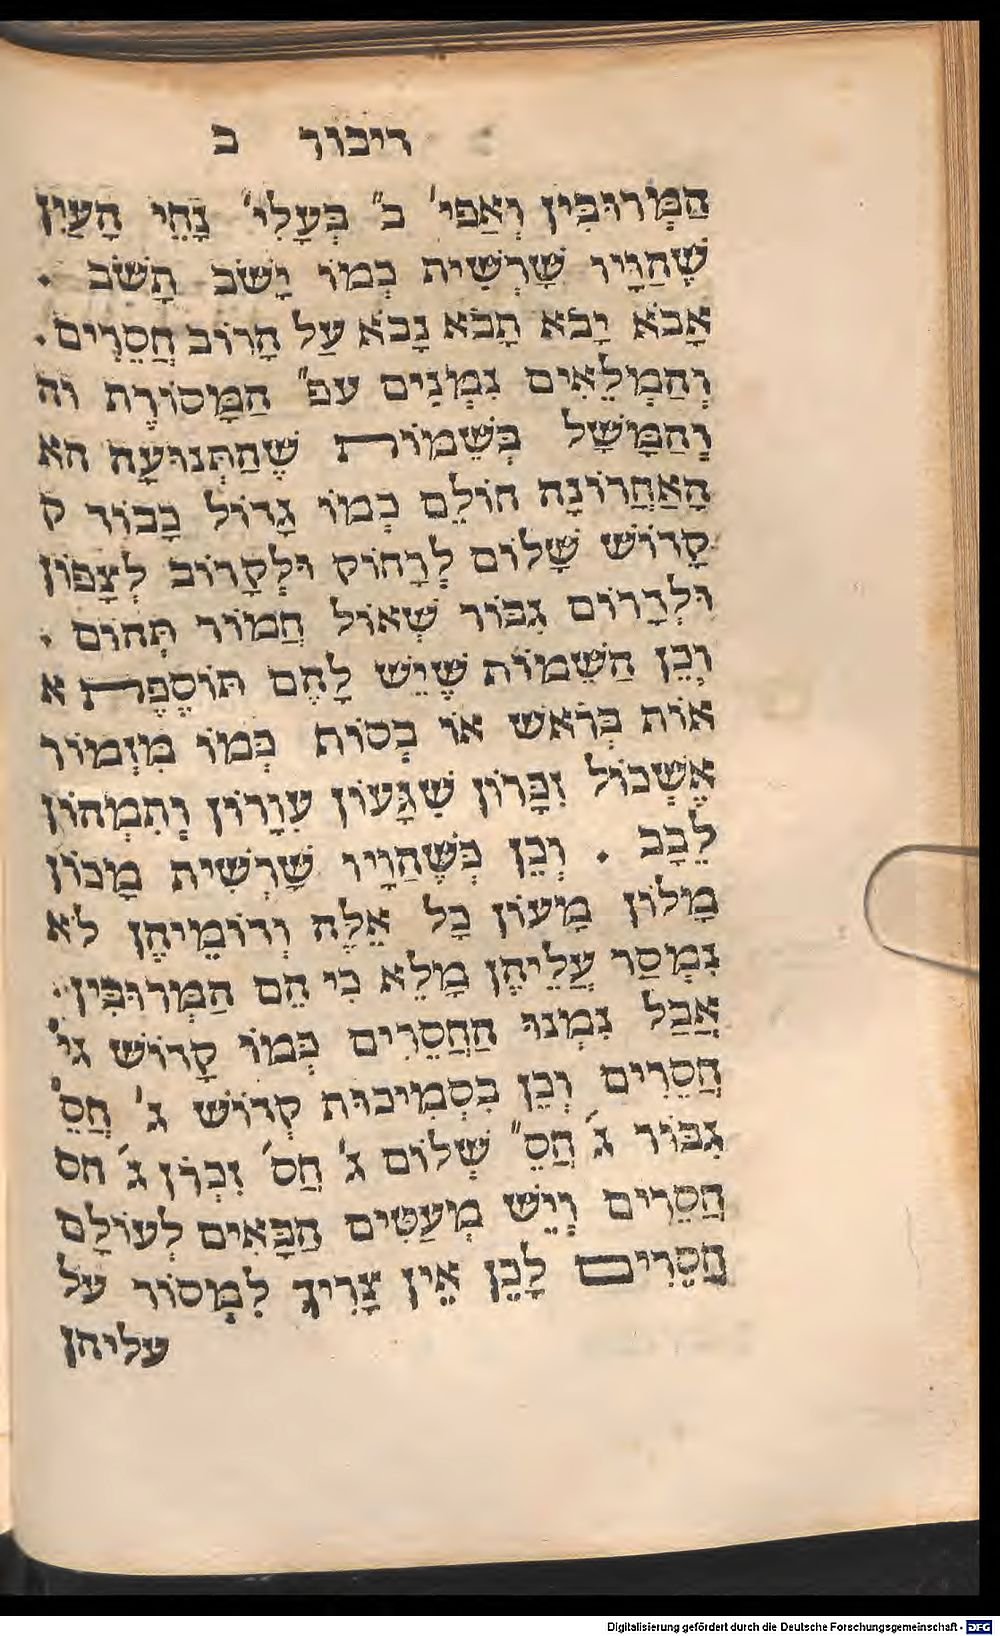 דיבור ב
הַמְּרוּבִּין וְאַפי' כ" בְּעָלִי' נָחֵי הָעַיִן
שֶׁהַוָּיו שָׁרְשִׁית כְּמוֹ יָשֹׁב תָשֹׁב .
אָבֹא יָבֹא תָבֹא נָבֹא עַל הָרוֹב חֲסֵרִים.
וְהַמְלֵאִים נִמְנִים עפ" הַמָּסוֹרֶת וה
וְהַמָּשָׁל בְּשֵׁמוֹת שֶׁהַתְּנוּעָה הא
הָאַחֲרוֹנָה חוֹלֵם כְּמוֹ גָדוֹל כָבוֹד ק
קָדוֹשׁ שָׁלוֹם לְרָחוֹק וּלְקָרוֹב לְצָפוֹן
וּלְדָרוֹם גִבּוֹר שְׁאוֹל חֲמוֹר תְּהוֹם .
וְכֵן הַשֵׁמוֹת שֶׁיֵשׁ לָהֶם תּוֹסֶפֶת א
אוֹת בְּרֹאשׁ אוֹ בְסוֹת כְּמוֹ מִזְמוֹר
אֶשְׁכּוֹל זִכָּרוֹן שִׁגָּעוֹן עִוָרוֹן וְתִמְהוֹן
לֵבָב . וְכֵן כְּשֶׁהַוָיו שָׁרְשִׁית מָכוֹן
מָלוֹן מָעוֹן כָל אֵלֶּה וְדוֹמֵיהֶן לֹא
נִמְסַר עֲלֵיהֶן מָלֵא כִּי הֵם הַמְּרוּבִּין.
אֲבָל נִמְנוּ הַחֲסֵרִים כְּמוֹ קָדוֹשׁ גי'
חֲסֵרִים וְכֵן בִּסְמִיכוּת קְדוֹשׁ ג' חֲסֵ'
גִבּוֹר ג' חֲסֵ" שְׁלוֹם ג' חֲס' זִכְרֹן ג' חס
חֲסֵרִים וְיֵשׁ מְעַטִּים הַבָּאִים לְעוֹלָם
חֲסֵרִים לָכֵן אֵין צָרִיךְ לִמְסוֹר על
עליהן
Digitalisierung gefördert durch die Deutsche Forschungsgemeinschaft - DFG